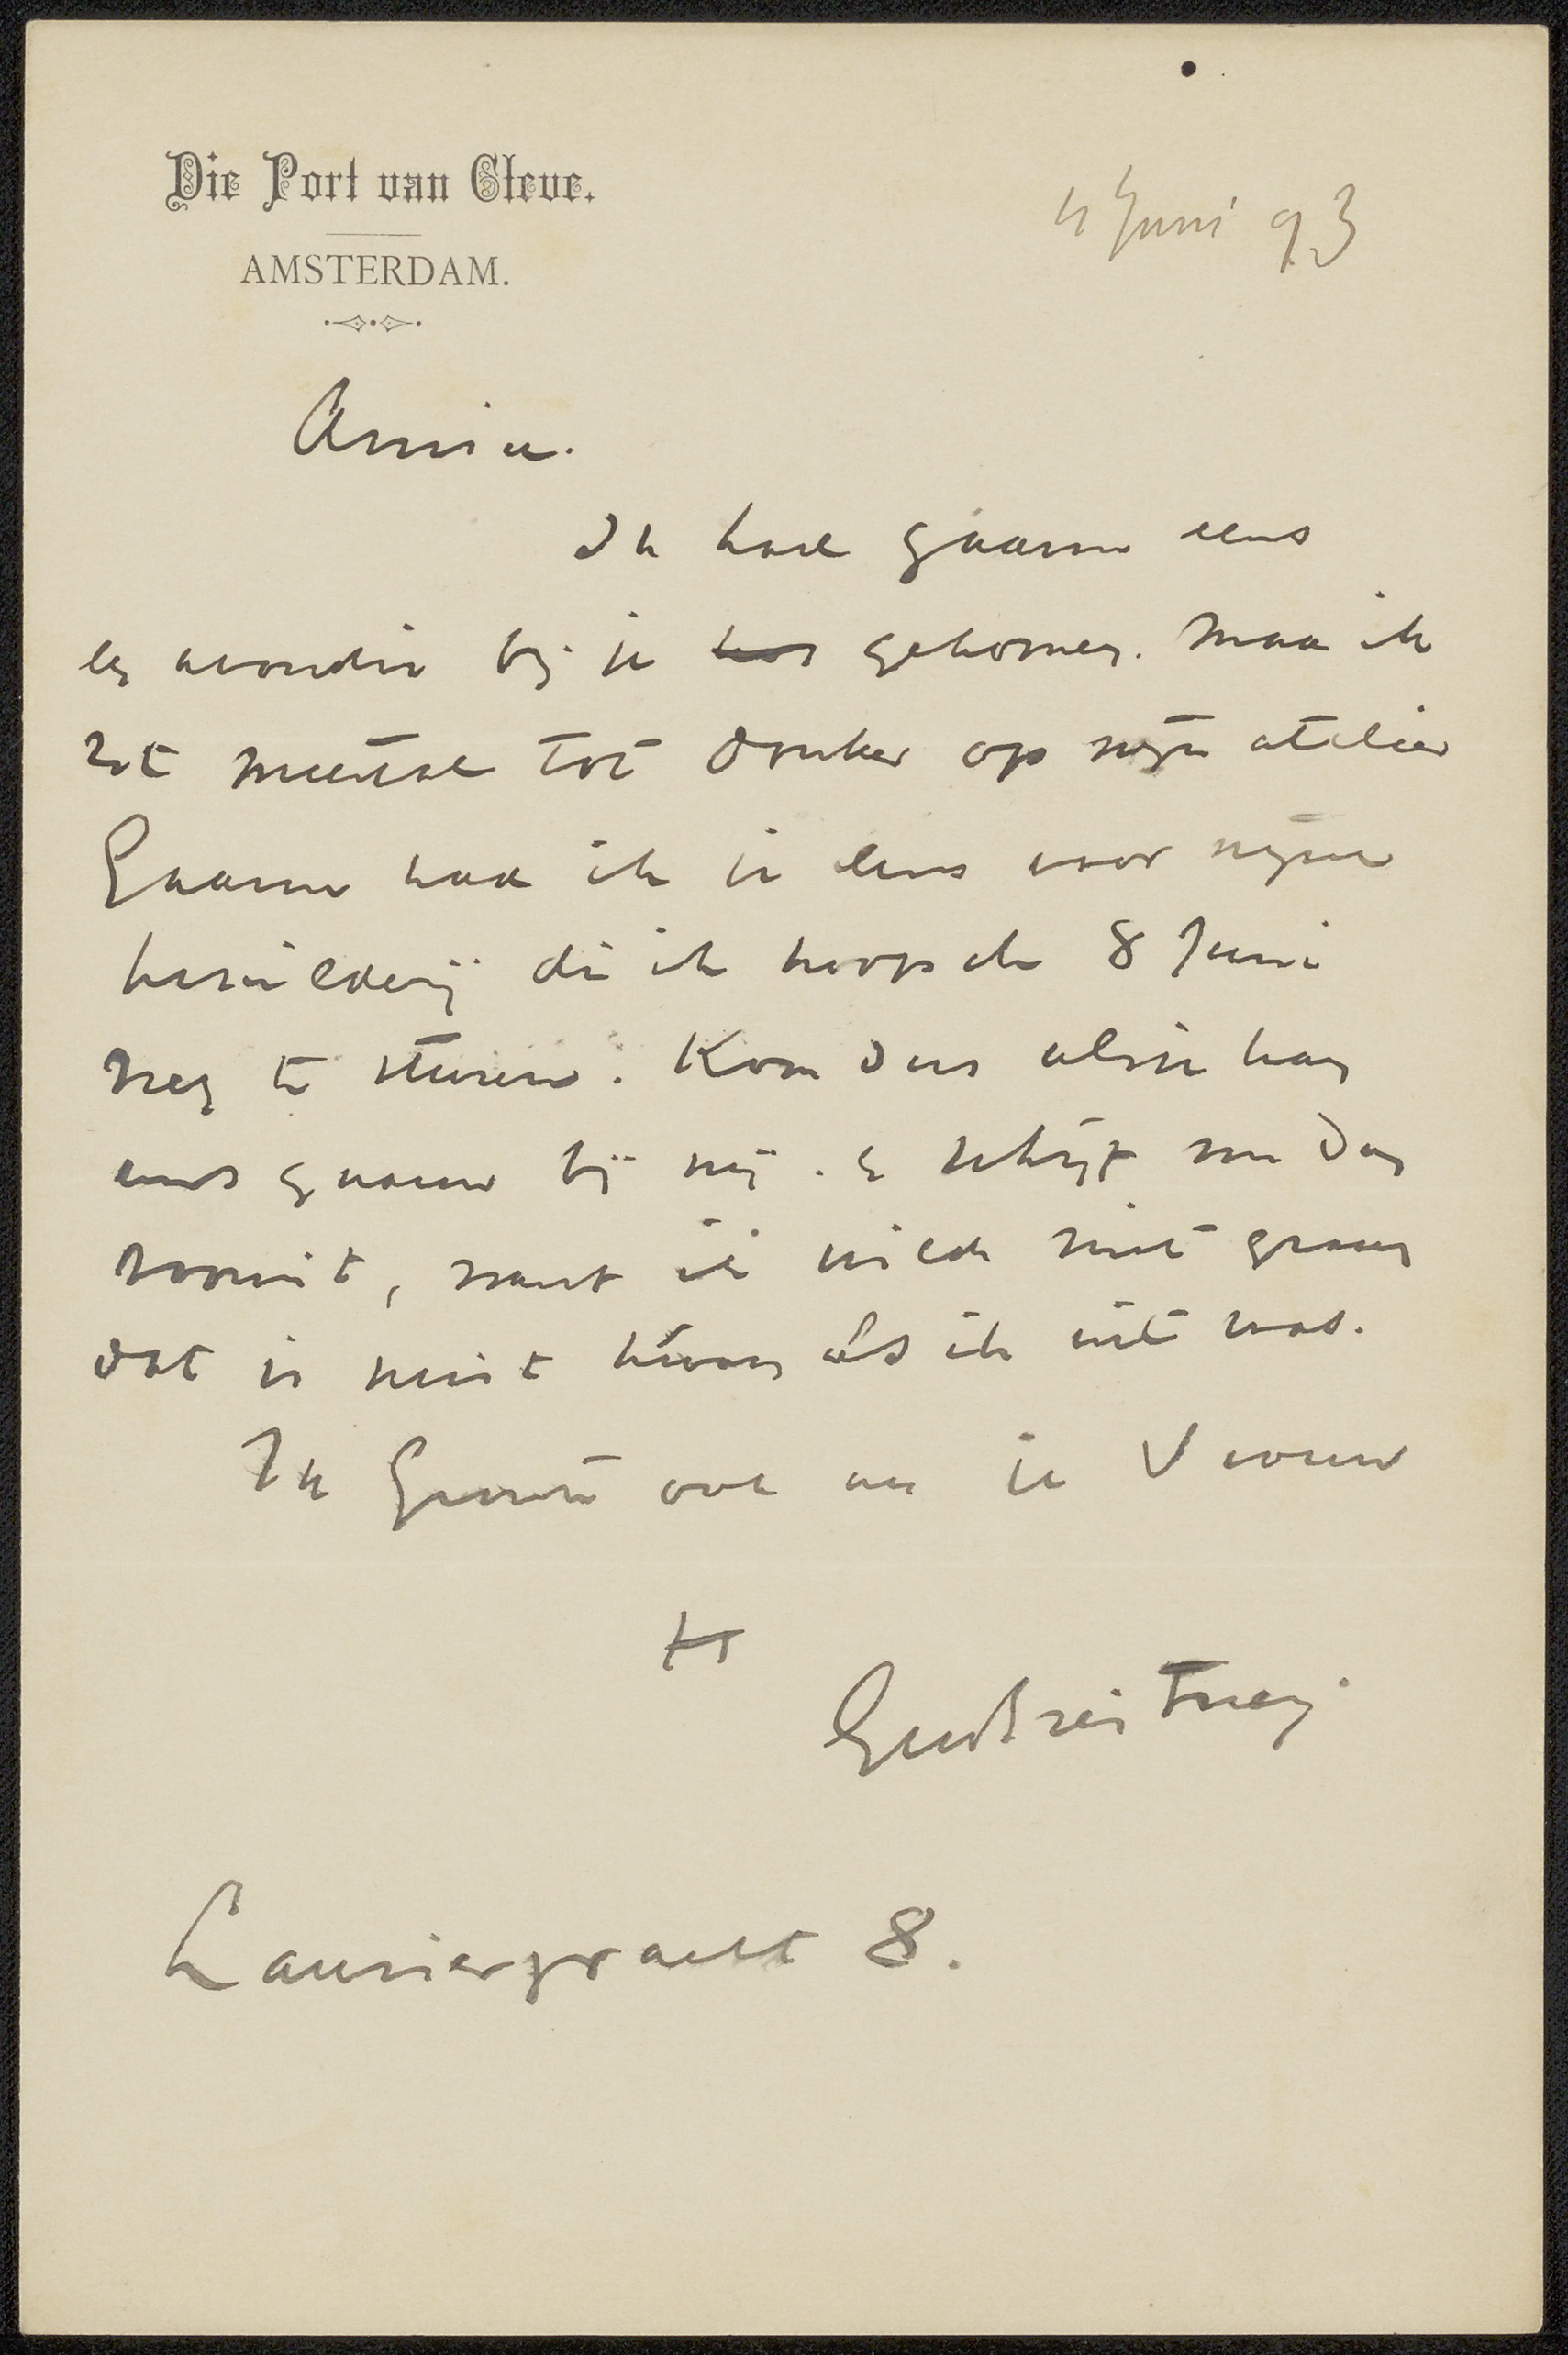 Die Port van Cleve.
AMSTERDAM.
4 Juni 93
Amice.
Ik had gaarne eens
avondje bij je gekomen. Maar ik
zit meestal tot donker op mijn atelier
Gaarne had ik je eens voor mijne
schilderij die ik hoop de 8 Juni
weg te sturen. Kom dus als je kan
eens gaauw bij mij. & schrijf me dag
vooruit, want ik wilde niet graag
dat je niet kwam als ik uit was.
Ik Groete ook aan je Vrouw
tt
GHBreitner
Lauriergracht 8.